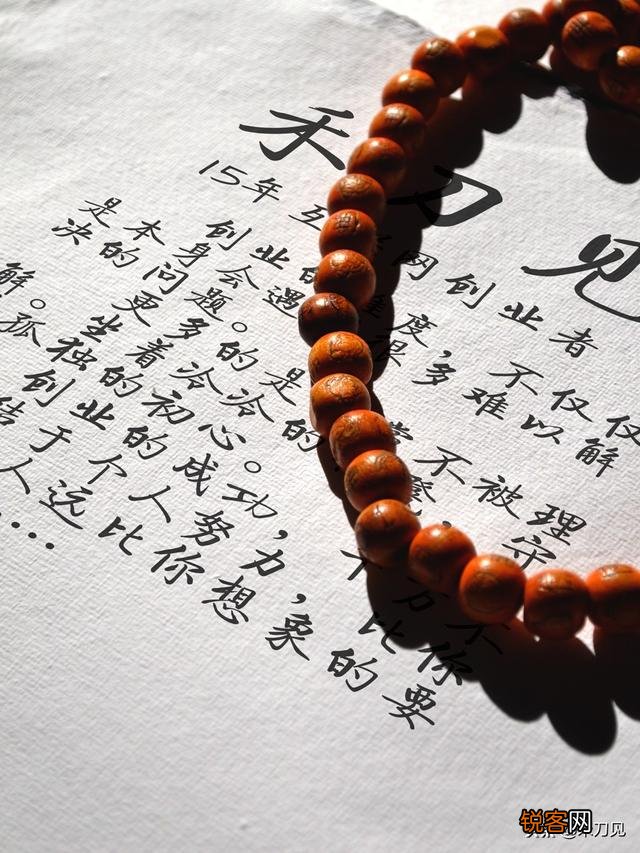 禾刀见
15年互网创业者
创业的难度，不仅仅
是本身会遇很多难以解
决的问题。
更多的是常不被理
解。坐着冷冷的凳，守
孤独的初心。
创业的成功，千万不
结于个人努力，比你
人远比你想象的要
……
锐客网
刀见